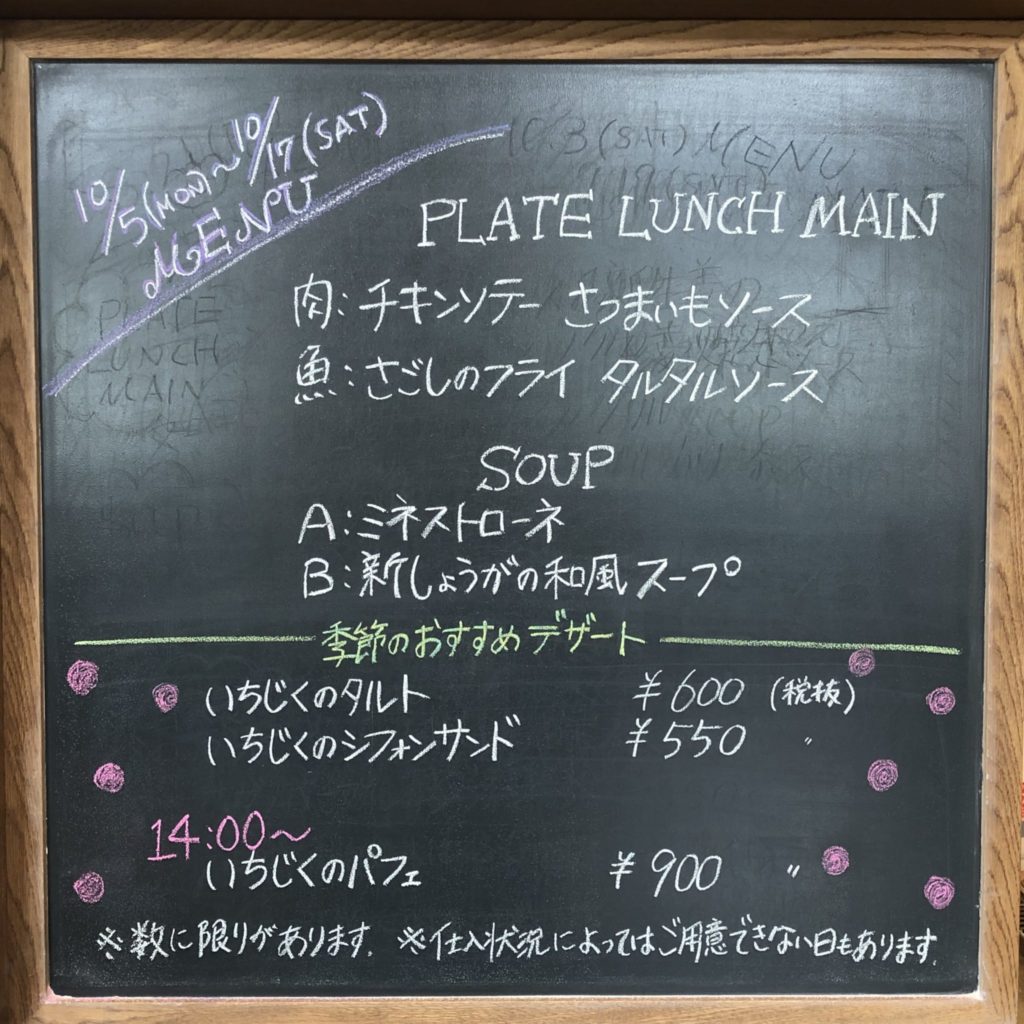 10/5(MON)〜10/17(SAT)
MENU
PLATE LUNCH MAIN
肉:チキンソテー さつまいもソース
魚:さごしのフライ タルタルソース
SOUP
A:ミネストローネ
B:新しょうがの和風スープ
季節のおすすめデザート
いちじくのタルト ¥600 (税抜)
いちじくのシフォンサンド ¥550 〃
14:00〜
いちじくのパフェ ¥900 〃
※数に限りがあります. ※仕入状況によってはご用意できない日もあります.
10/3(SAT) MENU
PLATE
LUNCH
MAIN